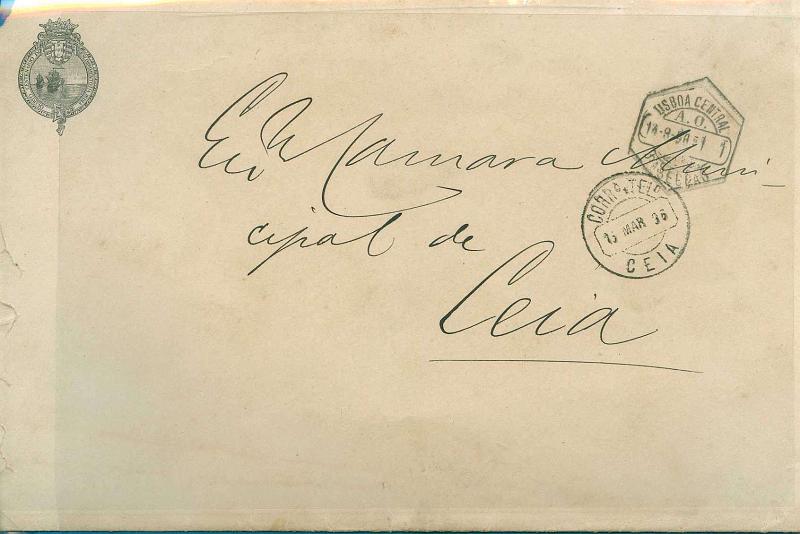 Ex.ma Camara Muni-
cipal de
Ceia
LISBOA CENTRAL
A. O.
1
CORRO. E TELO.
15 MAR 96
CEIA